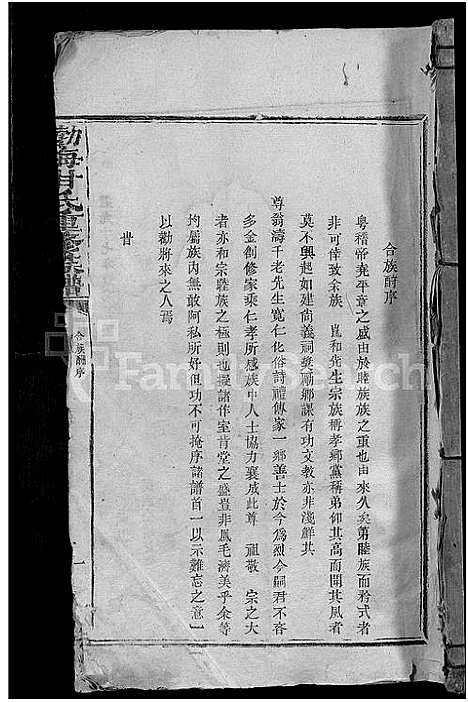 合族酧序
粤稽帝堯平章之盛由於睦族族之重也由來久矣第睦族而矜式者
非可倖致余族 崑和先生宗族稱孝鄉黨稱弟仰其高而聞其風者
莫不興起如建尚義祠獎勵鄉課有功文教亦非淺鮮其
尊翁濤千老先生寬仁化俗詩禮傳家一鄉善士於今爲烈今嗣君不吝
多金創修家乘仁孝所感族中人士協力襄成此尊 祖敬 宗之大
者亦和宗睦族之極則也擬諸作室肯堂之盛豈非鳳毛濟美乎余等
均屬族內無敢阿私所好但功不可掩序諸譜首一以示難忘之意一
以勸將來之人焉
渤海甘氏重修族譜
合族酧序
一
FamilySearch